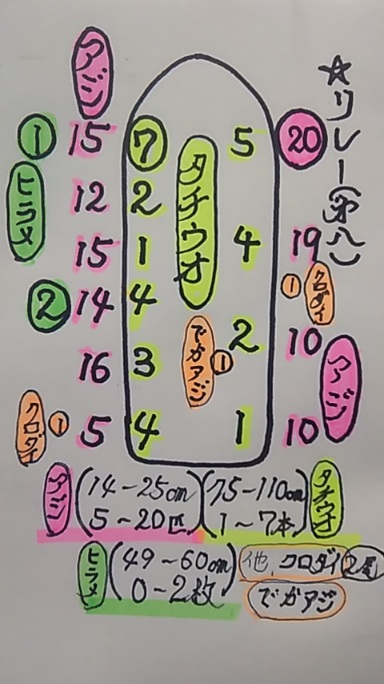 ☆リレー(第八)
アジ
① 15 7 5 20
ヒラメ
タチウオ
12 2
15 1 4 19
① クロダイ
② 14 4
でかアジ ①
2 10
アジ
16 3
クロダイ ① 5 4 1 10
アジ (14～25cm 5～20匹) (75～110cm 1～7本) タチウオ
ヒラメ (49～60cm 0～2枚) 他、クロダイ2尾
でかアジ